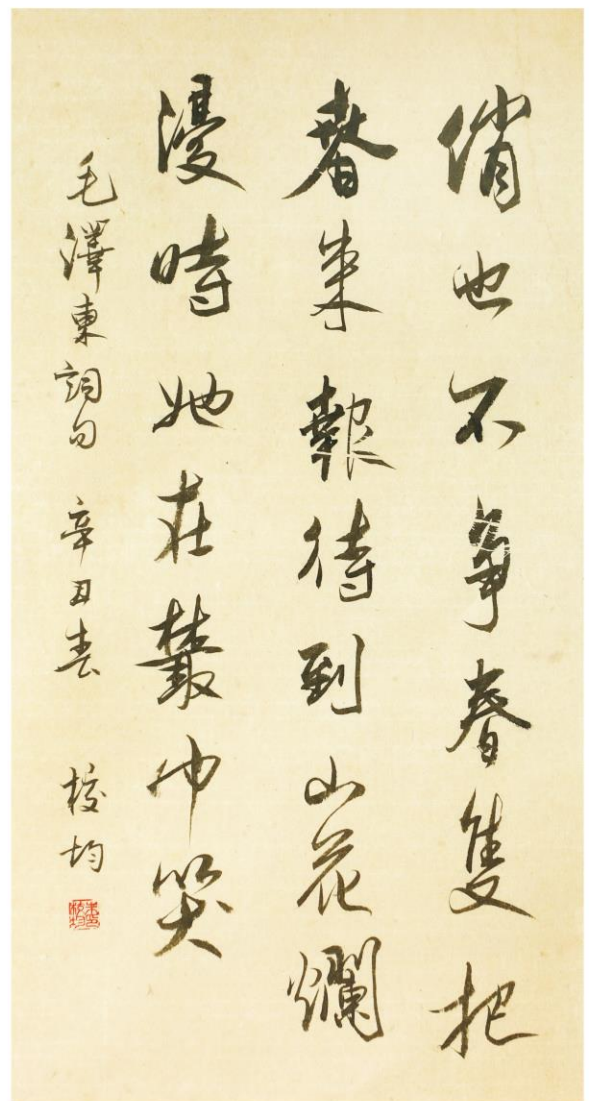 俏也不爭春隻把
春来報待到山花爛
漫時她在叢中笑
毛澤東詞句 辛丑春 梭均